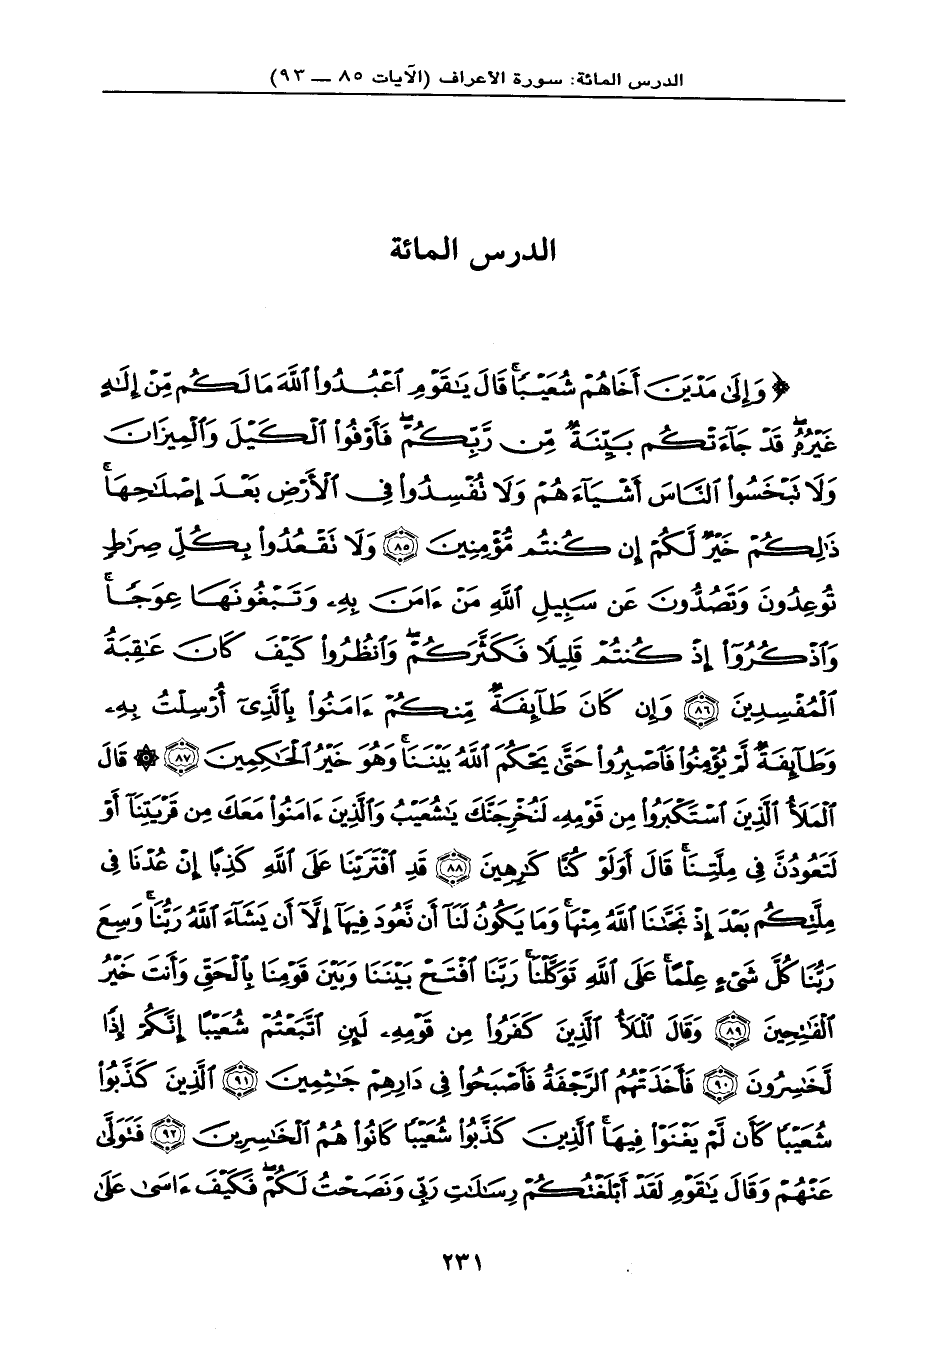 الدرس المائة: سورة الأعراف (الآيات ٨٥ ــ ٩٣)
الدرس المائة
﴿ وَإِلَىٰ مَدْيَنَ أَخَاهُمْ شُعَيْبًا ۗ قَالَ يَٰقَوْمِ ٱعْبُدُوا۟ ٱللَّهَ مَا لَكُم مِّنْ إِلَٰهٍ
غَيْرُهُۥ ۖ قَدْ جَآءَتْكُم بَيِّنَةٌ مِّن رَّبِّكُمْ ۖ فَأَوْفُوا۟ ٱلْكَيْلَ وَٱلْمِيزَانَ
وَلَا تَبْخَسُوا۟ ٱلنَّاسَ أَشْيَآءَهُمْ وَلَا تُفْسِدُوا۟ فِى ٱلْأَرْضِ بَعْدَ إِصْلَٰحِهَا ۚ
ذَٰلِكُمْ خَيْرٌ لَّكُمْ إِن كُنتُم مُّؤْمِنِينَ ﴿٨٥﴾ وَلَا تَقْعُدُوا۟ بِكُلِّ صِرَٰطٍ
تُوعِدُونَ وَتَصُدُّونَ عَن سَبِيلِ ٱللَّهِ مَنْ ءَامَنَ بِهِۦ وَتَبْغُونَهَا عِوَجًا ۚ
وَٱذْكُرُوٓا۟ إِذْ كُنتُمْ قَلِيلًا فَكَثَّرَكُمْ ۖ وَٱنظُرُوا۟ كَيْفَ كَانَ عَٰقِبَةُ
ٱلْمُفْسِدِينَ ﴿٨٦﴾ وَإِن كَانَ طَآئِفَةٌ مِّنكُمْ ءَامَنُوا۟ بِٱلَّذِىٓ أُرْسِلْتُ بِهِۦ
وَطَآئِفَةٌ لَّمْ يُؤْمِنُوا۟ فَٱصْبِرُوا۟ حَتَّىٰ يَحْكُمَ ٱللَّهُ بَيْنَنَا ۚ وَهُوَ خَيْرُ ٱلْحَٰكِمِينَ ﴿٨٧﴾ ۞ قَالَ
ٱلْمَلَأُ ٱلَّذِينَ ٱسْتَكْبَرُوا۟ مِن قَوْمِهِۦ لَنُخْرِجَنَّكَ يَٰشُعَيْبُ وَٱلَّذِينَ ءَامَنُوا۟ مَعَكَ مِن قَرْيَتِنَآ أَوْ
لَتَعُودُنَّ فِى مِلَّتِنَا ۚ قَالَ أَوَلَوْ كُنَّا كَٰرِهِينَ ﴿٨٨﴾ قَدِ ٱفْتَرَيْنَا عَلَى ٱللَّهِ كَذِبًا إِنْ عُدْنَا فِى
مِلَّتِكُم بَعْدَ إِذْ نَجَّىٰنَا ٱللَّهُ مِنْهَا ۚ وَمَا يَكُونُ لَنَآ أَن نَّعُودَ فِيهَآ إِلَّآ أَن يَشَآءَ ٱللَّهُ رَبُّنَا ۚ وَسِعَ
رَبُّنَا كُلَّ شَىْءٍ عِلْمًا ۚ عَلَى ٱللَّهِ تَوَكَّلْنَا ۚ رَبَّنَا ٱفْتَحْ بَيْنَنَا وَبَيْنَ قَوْمِنَا بِٱلْحَقِّ وَأَنتَ خَيْرُ
ٱلْفَٰتِحِينَ ﴿٨٩﴾ وَقَالَ ٱلْمَلَأُ ٱلَّذِينَ كَفَرُوا۟ مِن قَوْمِهِۦ لَئِنِ ٱتَّبَعْتُمْ شُعَيْبًا إِنَّكُمْ إِذًا
لَّخَٰسِرُونَ ﴿٩٠﴾ فَأَخَذَتْهُمُ ٱلرَّجْفَةُ فَأَصْبَحُوا۟ فِى دَارِهِمْ جَٰثِمِينَ ﴿٩١﴾ ٱلَّذِينَ كَذَّبُوا۟
شُعَيْبًا كَأَن لَّمْ يَغْنَوْا۟ فِيهَا ۚ ٱلَّذِينَ كَذَّبُوا۟ شُعَيْبًا كَانُوا۟ هُمُ ٱلْخَٰسِرِينَ ﴿٩٢﴾ فَتَوَلَّىٰ
عَنْهُمْ وَقَالَ يَٰقَوْمِ لَقَدْ أَبْلَغْتُكُمْ رِسَٰلَٰتِ رَبِّى وَنَصَحْتُ لَكُمْ ۖ فَكَيْفَ ءَاسَىٰ عَلَىٰ
٢٣١